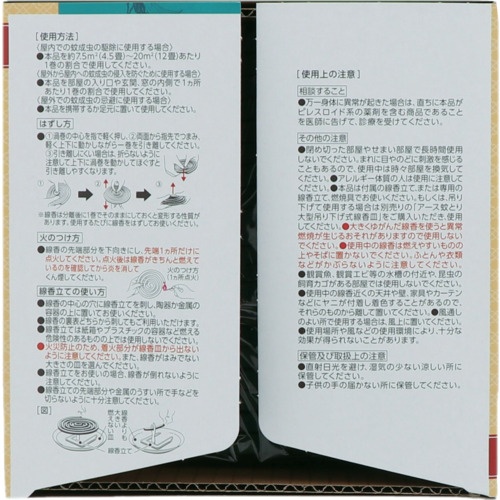 ［使用方法］
〈屋内での蚊成虫の駆除に使用する場合〉
●本品を約7.5m²(4.5畳)～20m²(12畳)あたり
1巻の割合で使用してください。
〈屋外から屋内への蚊成虫の侵入を防ぐために使用する場合〉
●本品を部屋の入り口や玄関、窓の内側で1ヵ所
あたり1巻の割合で使用してください。
〈屋外での蚊成虫の忌避に使用する場合〉
●本品を携帯するか足元に置いて使用してください。
はずし方
●①渦巻の中心を指で軽く押し、②両面から指先でつまみ、
軽く上下に動かしながら一巻を引き離してください。
③引き離しにくい場合は、折らないように
注意して上下に渦巻を動かしてほぐすと
引き離しやすくなります。
① ② ③
※線香は分離後に1巻でそのままにしておくと変形する場合が
あります。使用するたびに線香をはずしてお使いください。
火のつけ方
●線香の先端部分を下向きにし、先端1ヵ所だけに
点火してください。点火後は線香がきちんと燃えて
いるのを確認してから炎を消して
くん煙してください。
火のつけ方
(1ヵ所点火)
線香立ての使い方
●線香の中心の穴に線香立てを刺し、陶器か金属の
容器の上に置いてお使いください。
●線香の裏表どちらから刺してもご利用いただけます。
●線香立ては紙箱やプラスチックの容器など燃える
危険性のあるものの上では使用しないでください。
●火災防止のため、着火部分が線香皿から出ない
ように注意してください。また、線香がはみでない
大きさの皿を選んでください。
●線香立てをお使いの場合、線香が倒れないように
注意してください。
●線香立ての先端部分や金属のうすい所で手などを
切らないように十分注意してください。
［図］
線香よりも
大きい
燃えない皿
線香立て
線香立て
［使用上の注意］
相談すること
●万一身体に異常が起きた場合は、直ちに本品が
ピレスロイド系の薬剤を含む商品であること
を医師に告げて、診療を受けてください。
その他の注意
●閉め切った部屋やせまい部屋で長時間使用
しないでください。まれに目やのどに刺激を感じる
こともあるので、使用中は時々部屋を換気してくだ
さい。●アレルギー体質の人は使用に注意して
ください。●本品は付属の線香立て、または専用の
線香立て、燃焼皿でお使いください。もしくは、吊り
下げて使用する場合は別売りの「アース蚊とり
大型吊り下げ式線香皿」をご購入いただき、使用
してください。●大きくゆがんだ線香を使うと異常
燃焼が生じるおそれがありますので使用しない
でください。●使用中の線香は燃えやすいものの
上やそばに置かないでください。ふとんや衣類
などがかぶらないように注意してください。
●観賞魚、観賞エビ等の水槽の付近や、昆虫の
飼育カゴがある部屋では使用しないでください。
●使用中の線香近くの天井や壁、家具やカーテン
などにヤニが付着し着色することがあるので、
それらのものから離して置いてください。●風通し
のよい所で使用する場合は、風上に置いてください。
●使用場所や風などの使用環境により、十分な
効果が得られないことがあります。
保管及び取扱上の注意
●直射日光を避け、湿気の少ない涼しい所に
保管してください。
●子供の手の届かない所に保管してください。